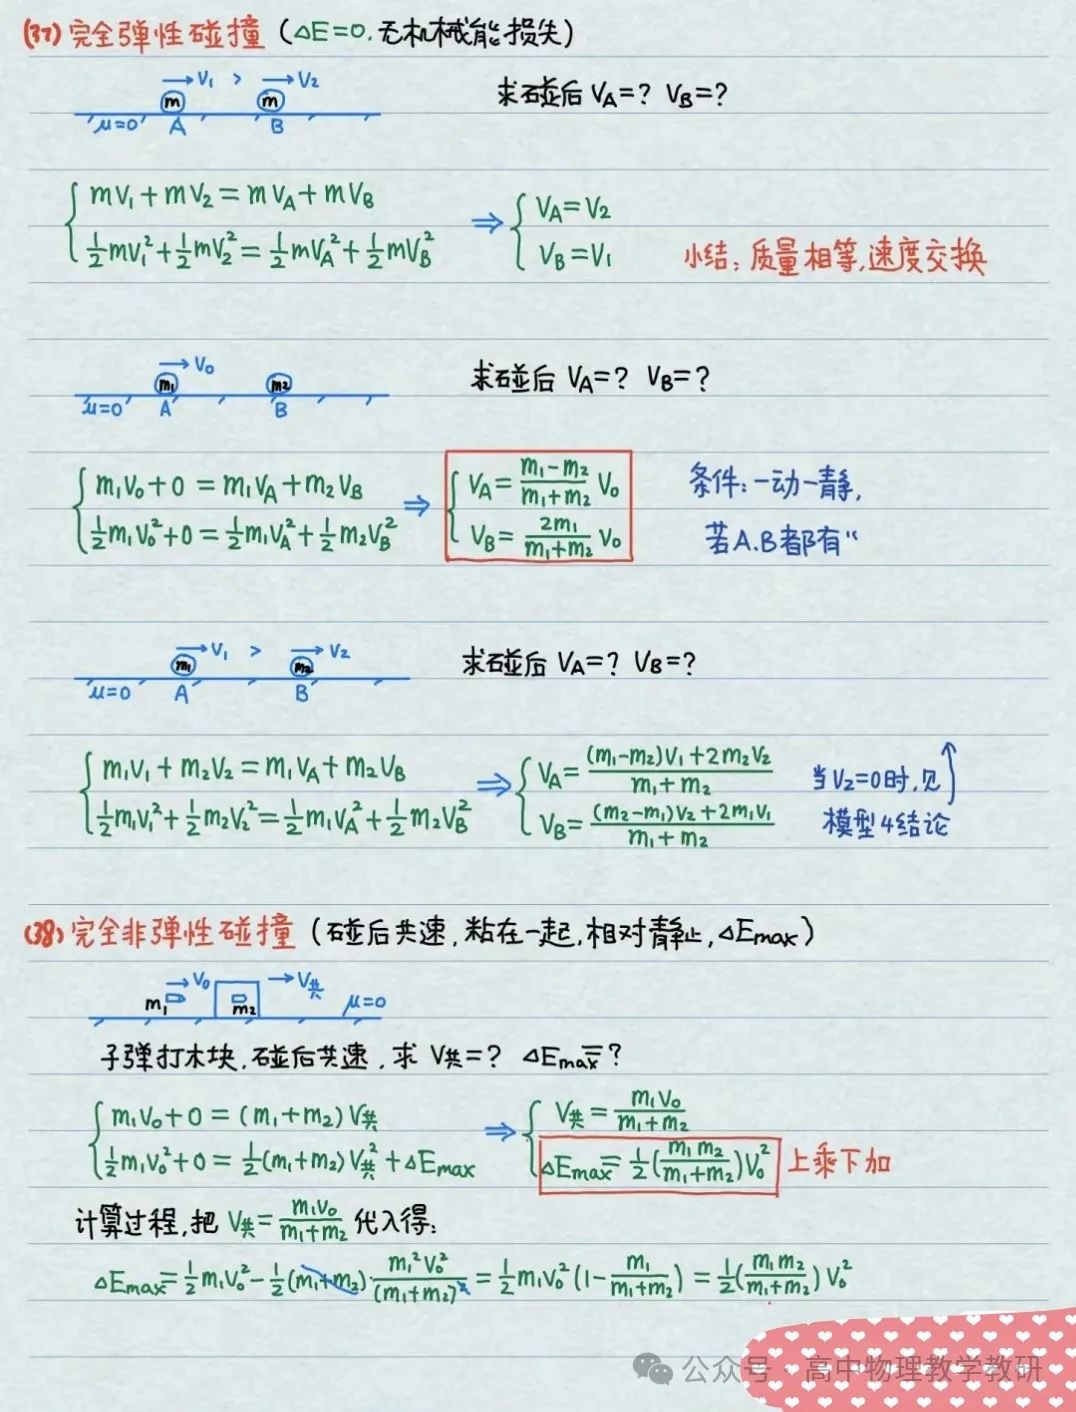 (37) 完全弹性碰撞 (△E=0.无机械能损失)
→V₁ > →V₂
m m 求碰后 VA=? VB=?
μ=0 A B
{ mV₁+mV₂=mVA+mVB
½mV₁²+½mV₂²=½mVA²+½mVB²
⇒ { VA=V₂
VB=V₁
小结：质量相等,速度交换
→V₀
m₁ m₂ 求碰后 VA=? VB=?
μ=0 A B
{ m₁V₀+0=m₁VA+m₂VB
½m₁V₀²+0=½m₁VA²+½m₂VB²
⇒ { VA=(m₁-m₂)/(m₁+m₂) V₀
VB=2m₁/(m₁+m₂) V₀
条件：一动一静,
若A.B都有“
→V₁ > →V₂
m₁ m₂ 求碰后 VA=? VB=?
μ=0 A B
{ m₁V₁+m₂V₂=m₁VA+m₂VB
½m₁V₁²+½m₂V₂²=½m₁VA²+½m₂VB²
⇒ { VA=((m₁-m₂)V₁+2m₂V₂)/(m₁+m₂)
VB=((m₂-m₁)V₂+2m₁V₁)/(m₁+m₂)
当V₂=0时,见
模型4结论
(38) 完全非弹性碰撞 (碰后共速,粘在一起,相对静止,△Emax)
m₁ →V₀ m₂ →V共 μ=0
子弹打木块,碰后共速,求 V共=? △Emax=?
{ m₁V₀+0=(m₁+m₂)V共
½m₁V₀²+0=½(m₁+m₂)V共²+△Emax
⇒ { V共=m₁V₀/(m₁+m₂)
△Emax=½(m₁m₂/(m₁+m₂))V₀² 上乘下加
计算过程,把 V共=m₁V₀/(m₁+m₂) 代入得：
△Emax=½m₁V₀²-½(m₁+m₂)·m₁²V₀²/(m₁+m₂)²=½m₁V₀²(1-m₁/(m₁+m₂))=½(m₁m₂/(m₁+m₂))V₀²
公众号 高中物理教学教研